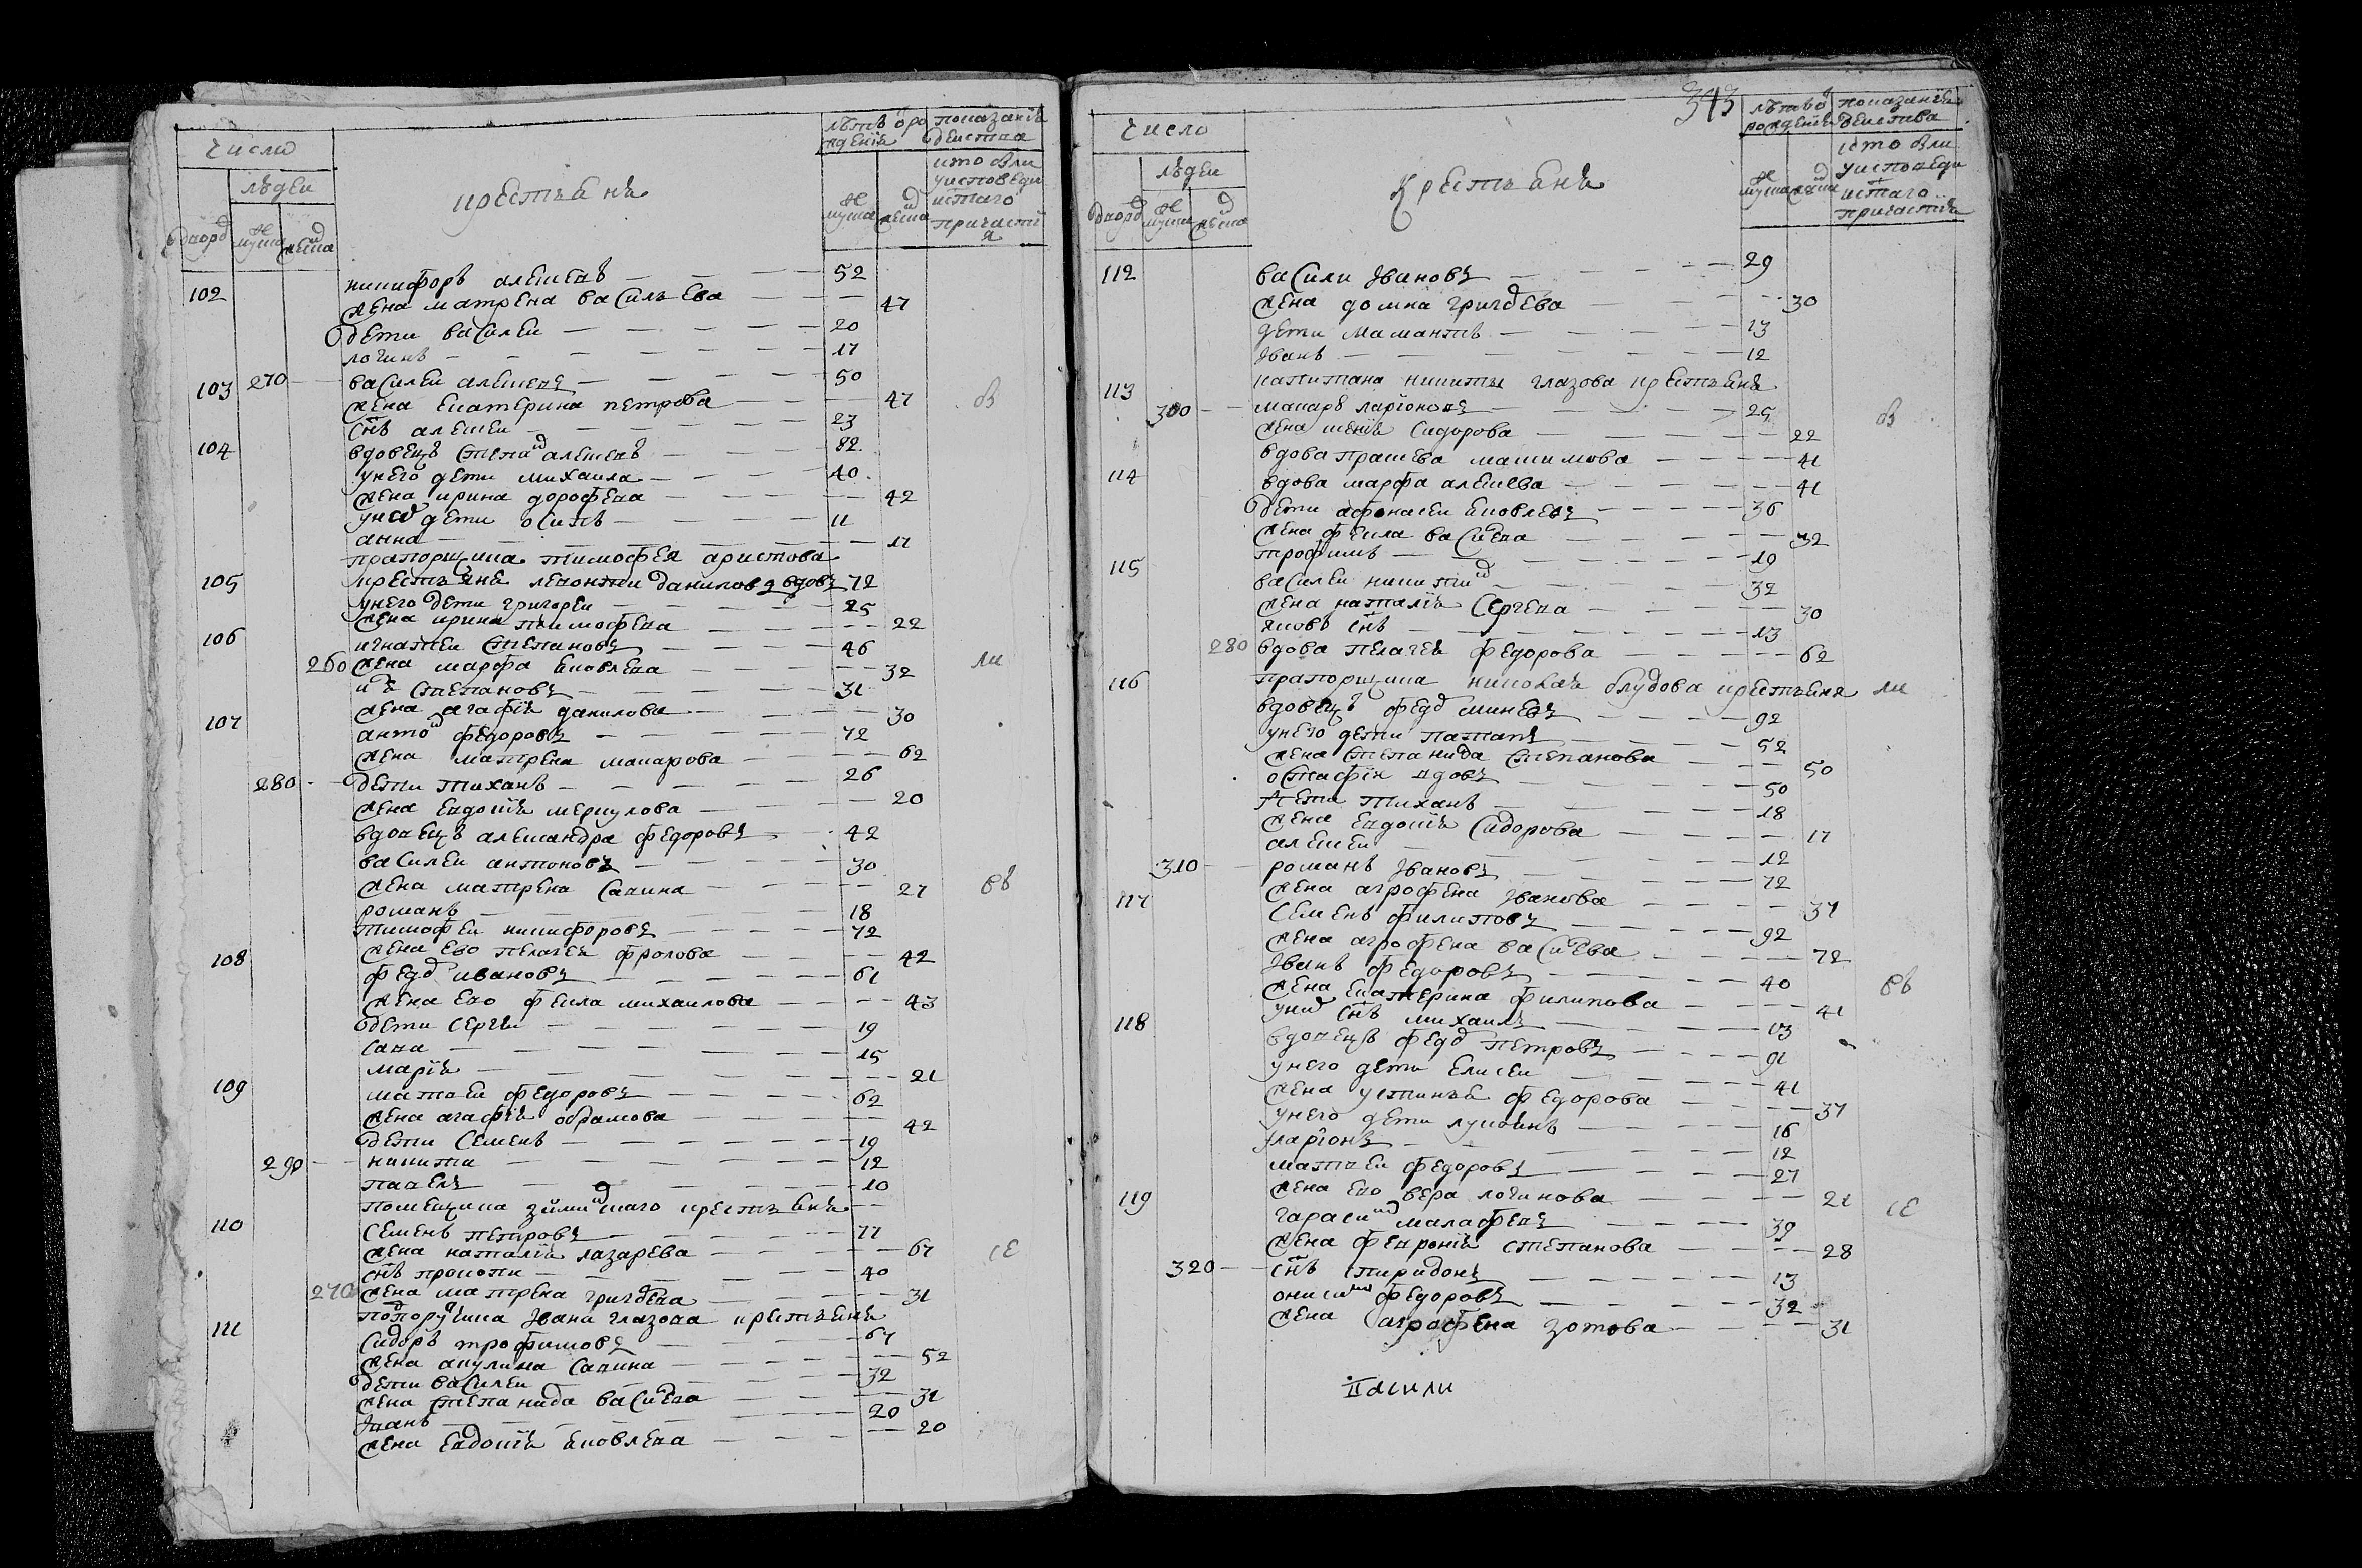 число
людеи
дворо
мужеска
женска
крестьянѣ
лѣтъ оро
жденiя
мужеска
женска
показанiе
действа
кто были
уисповеди
истаго
причастi
я
102 никифоръ алексевъ 52
жена матрена василъева 47
дети василеи 20
логинъ 17
103 270 василеи алексевъ 50
жена екатерина петрова 47
снъ алексеи 23
104 вдовецъ степа алексевъ 82
унего дети михаила 40
жена ирина дорофева 42
унсо дети осипъ 11
анна 11
прапорщика тимофея аристова
105 крестъяне левонтеи даниловъ вдовъ 72
унего дети григореи 25
жена ирина тимофева 22
106 игнатеи степановъ 46
260 жена марфа яковлева 32
степановъ 31
жена агафiя данилова 30
107 анто федоровъ 72
жена матрена макарова 62
280 дети тиханъ 26
жена евдокiя меркулова 20
вдовецъ александра федоровъ 42
василеи антоновъ 30
жена матрена савина 27
романъ 18
тимофеи никифоровъ 72
108 жена ево пелагея фролова 42
федо ивановъ 61
жена ево фекла михаилова 43
дети сергеи 19
сава 15
марiя 21
109 матвеи федоровъ 62
жена агафiя абрамова 42
дети семенъ 19
290 никита 12
павелъ 10
помещика крестъянѣ
110 семенъ петровъ 77
жена наталiя лазарева 67
снъ прокопи 40
270 жена матрена григорева 31
подпорутчика Iвана глазова крестъянѣ
111 сидоръ трофимовъ 67
жена акулина савина 52
дети василеи 32
жена степанида василева 31
Iванъ 20
жена евдокiя яковлева 20
343
число
людеи
дворо
мужеска
женска
Крестъянѣ
лѣтъ о
рожденiя
мужеска
женска
показанiе
действа
кто были
уисповеди
истаго
причастiя
112 васили Iвановъ 29
жена домна григорева 30
дети мамантъ 13
Iванъ 12
113 капитана никиты глазова крестъянѣ
300 макаръ ларiоновъ 25
жена ксенiя сидорова 22
вдова прасковя максимова 41
114 вдова марфа алексева 41
дети афонасеи яковлевъ 36
жена фекла василева 32
трофимъ 19
115 василеи никити 32
жена наталiя сергева 30
яковъ снъ 13
280 вдова пелагея федорова 62
116 прапорщика николая блудова крестъянѣ
вдовецъ федо минеевъ 92
унего дети патапъ 52
жена степанида степанова 50
остафiи вдовъ 50
дети тиханъ 18
жена евдокiя сидорова 17
алексеи 12
310 романъ Iвановъ 72
жена агрофена Iванова 37
117 семенъ филиповъ 92
жена агрофена василева 72
Iванъ федоровъ 40
жена екатерина филипова 41
унсо снъ михаилъ 13
118 вдовецъ федо петровъ 91
унего дети елисеи 41
жена устинъя федорова 37
унего дети лукиянъ 16
ларiонъ 12
матвеи федоровъ 27
жена ево вера логинова 21
119 гараси малафевъ 39
жена феврониiя степанова 28
320 снъ спиридонъ 13
ониси федоровъ 32
жена агрофена зотова 31
въ
ли
евъ
се
въ
ли
евъ
се
васили